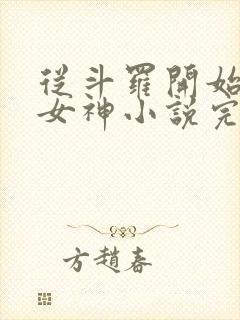 從斗羅開始
女神小說完
方趙春